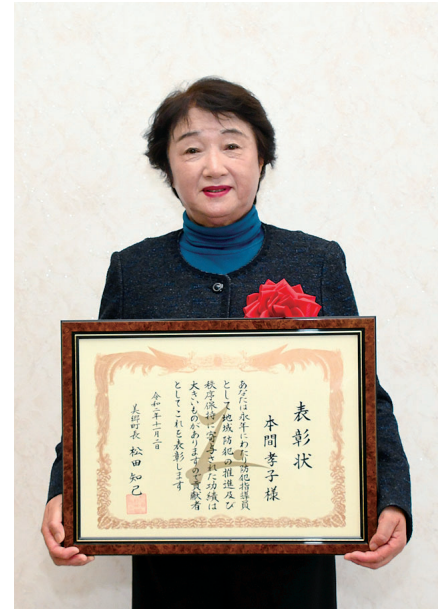 表彰状
本間孝子様
あなたは永年にわたり防犯指導員
として地域防犯の推進及び
秩序保持に寄与された功績は
大きいものがありますので貢献者
としてこれを表彰します
令和二年十一月二日
美郷町長 松田知己